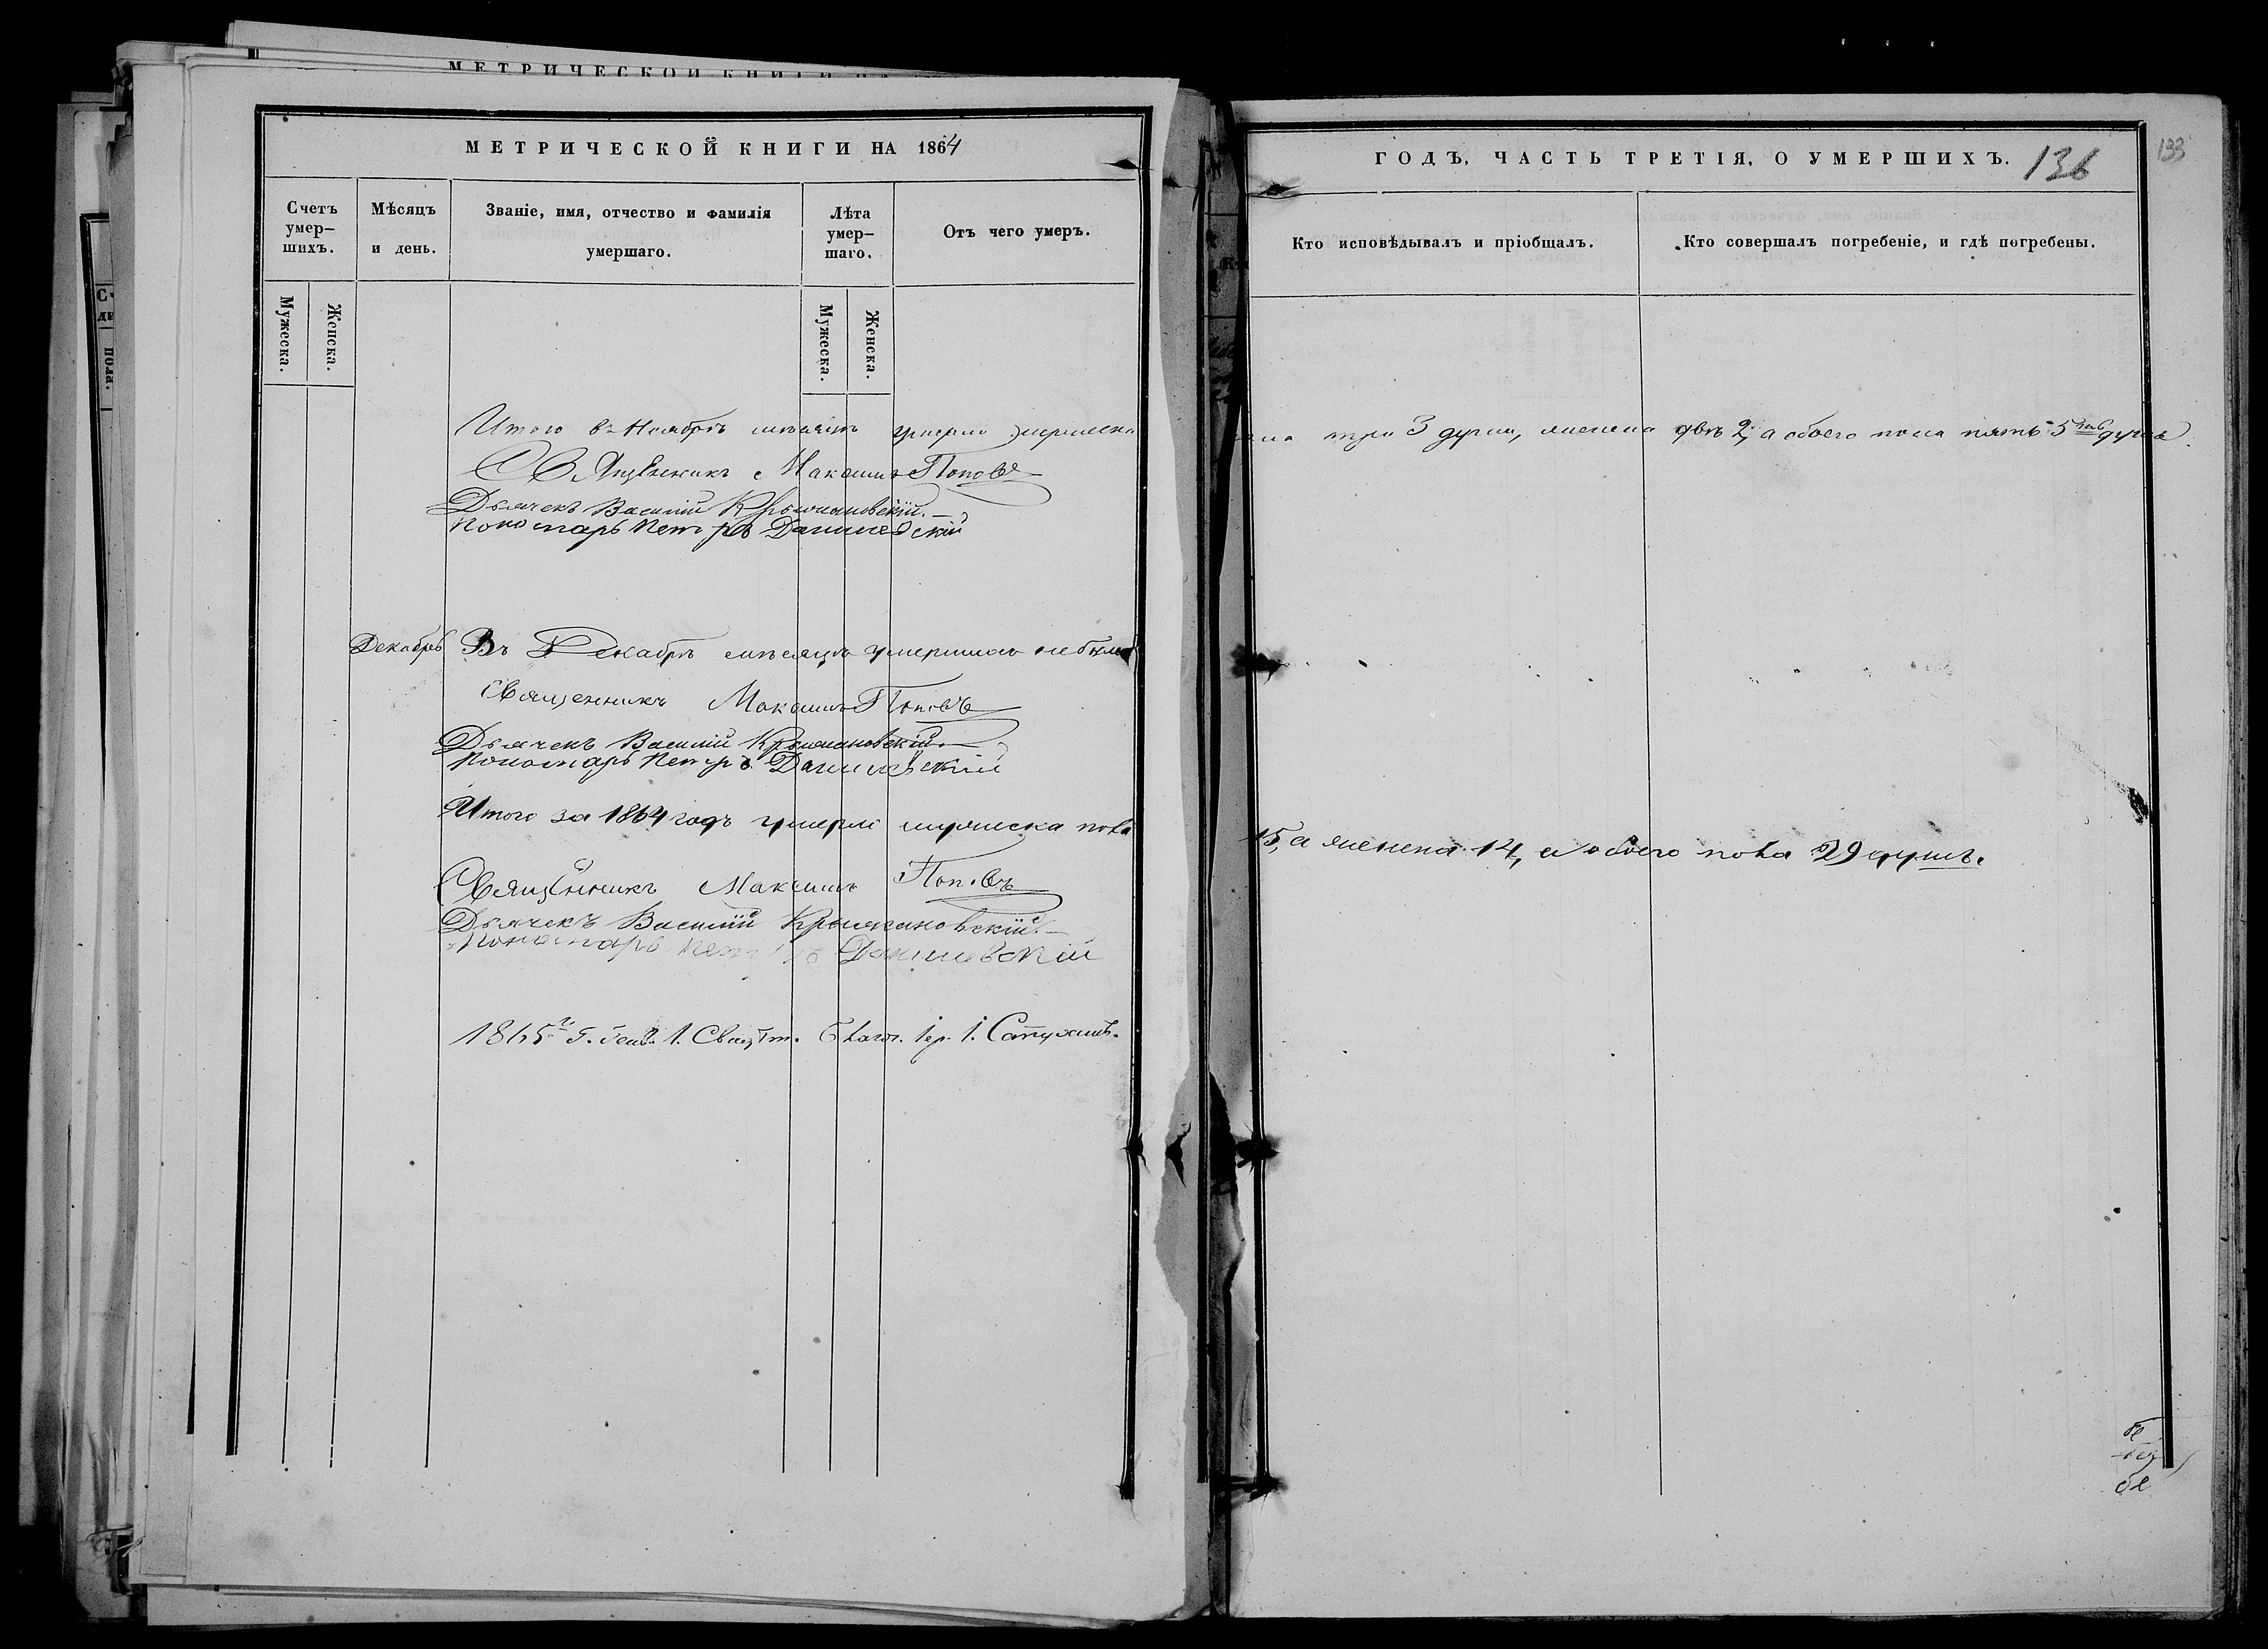 МЕТРИЧЕСКОЙ КНИГИ НА 1864
Счетъ умер-шихъ.
Мѣсяцъ и день.
Званіе, имя, отчество и фамилія умершаго.
Лѣта умер-шаго.
Отъ чего умеръ.
Мужеска.
Женска.
Мужеска.
Женска.
Итого въ Ноябрѣ мѣсяцѣ умерло мужеска
Священникъ Максимъ Поповъ
Дьячекъ Василій Крыжановскій.
Пономарь Петръ Данилевскій
Декабрь
Въ Декабрѣ мѣсяцѣ умершихъ не было
Священникъ Максимъ Поповъ
Дьячекъ Василій Крыжановскій.
Пономарь Петръ Данилевскій
Итого за 1864 годъ умерло мужеска пола
Священникъ Максимъ Поповъ
Дьячекъ Василій Крыжановскій.
Пономарь Петръ Данилевскій
1865 г. Генв. 1. Свид. Благоч. Іер. І.
ГОДЪ, ЧАСТЬ ТРЕТІЯ, О УМЕРШИХЪ.
136
133
Кто исповѣдывалъ и пріобщалъ.
Кто совершалъ погребеніе, и гдѣ погребены.
пола три 3 души, женска двѣ 2, а обоего пола пять 5 душъ.
15, а женска 14, а обоего пола 29 душъ.